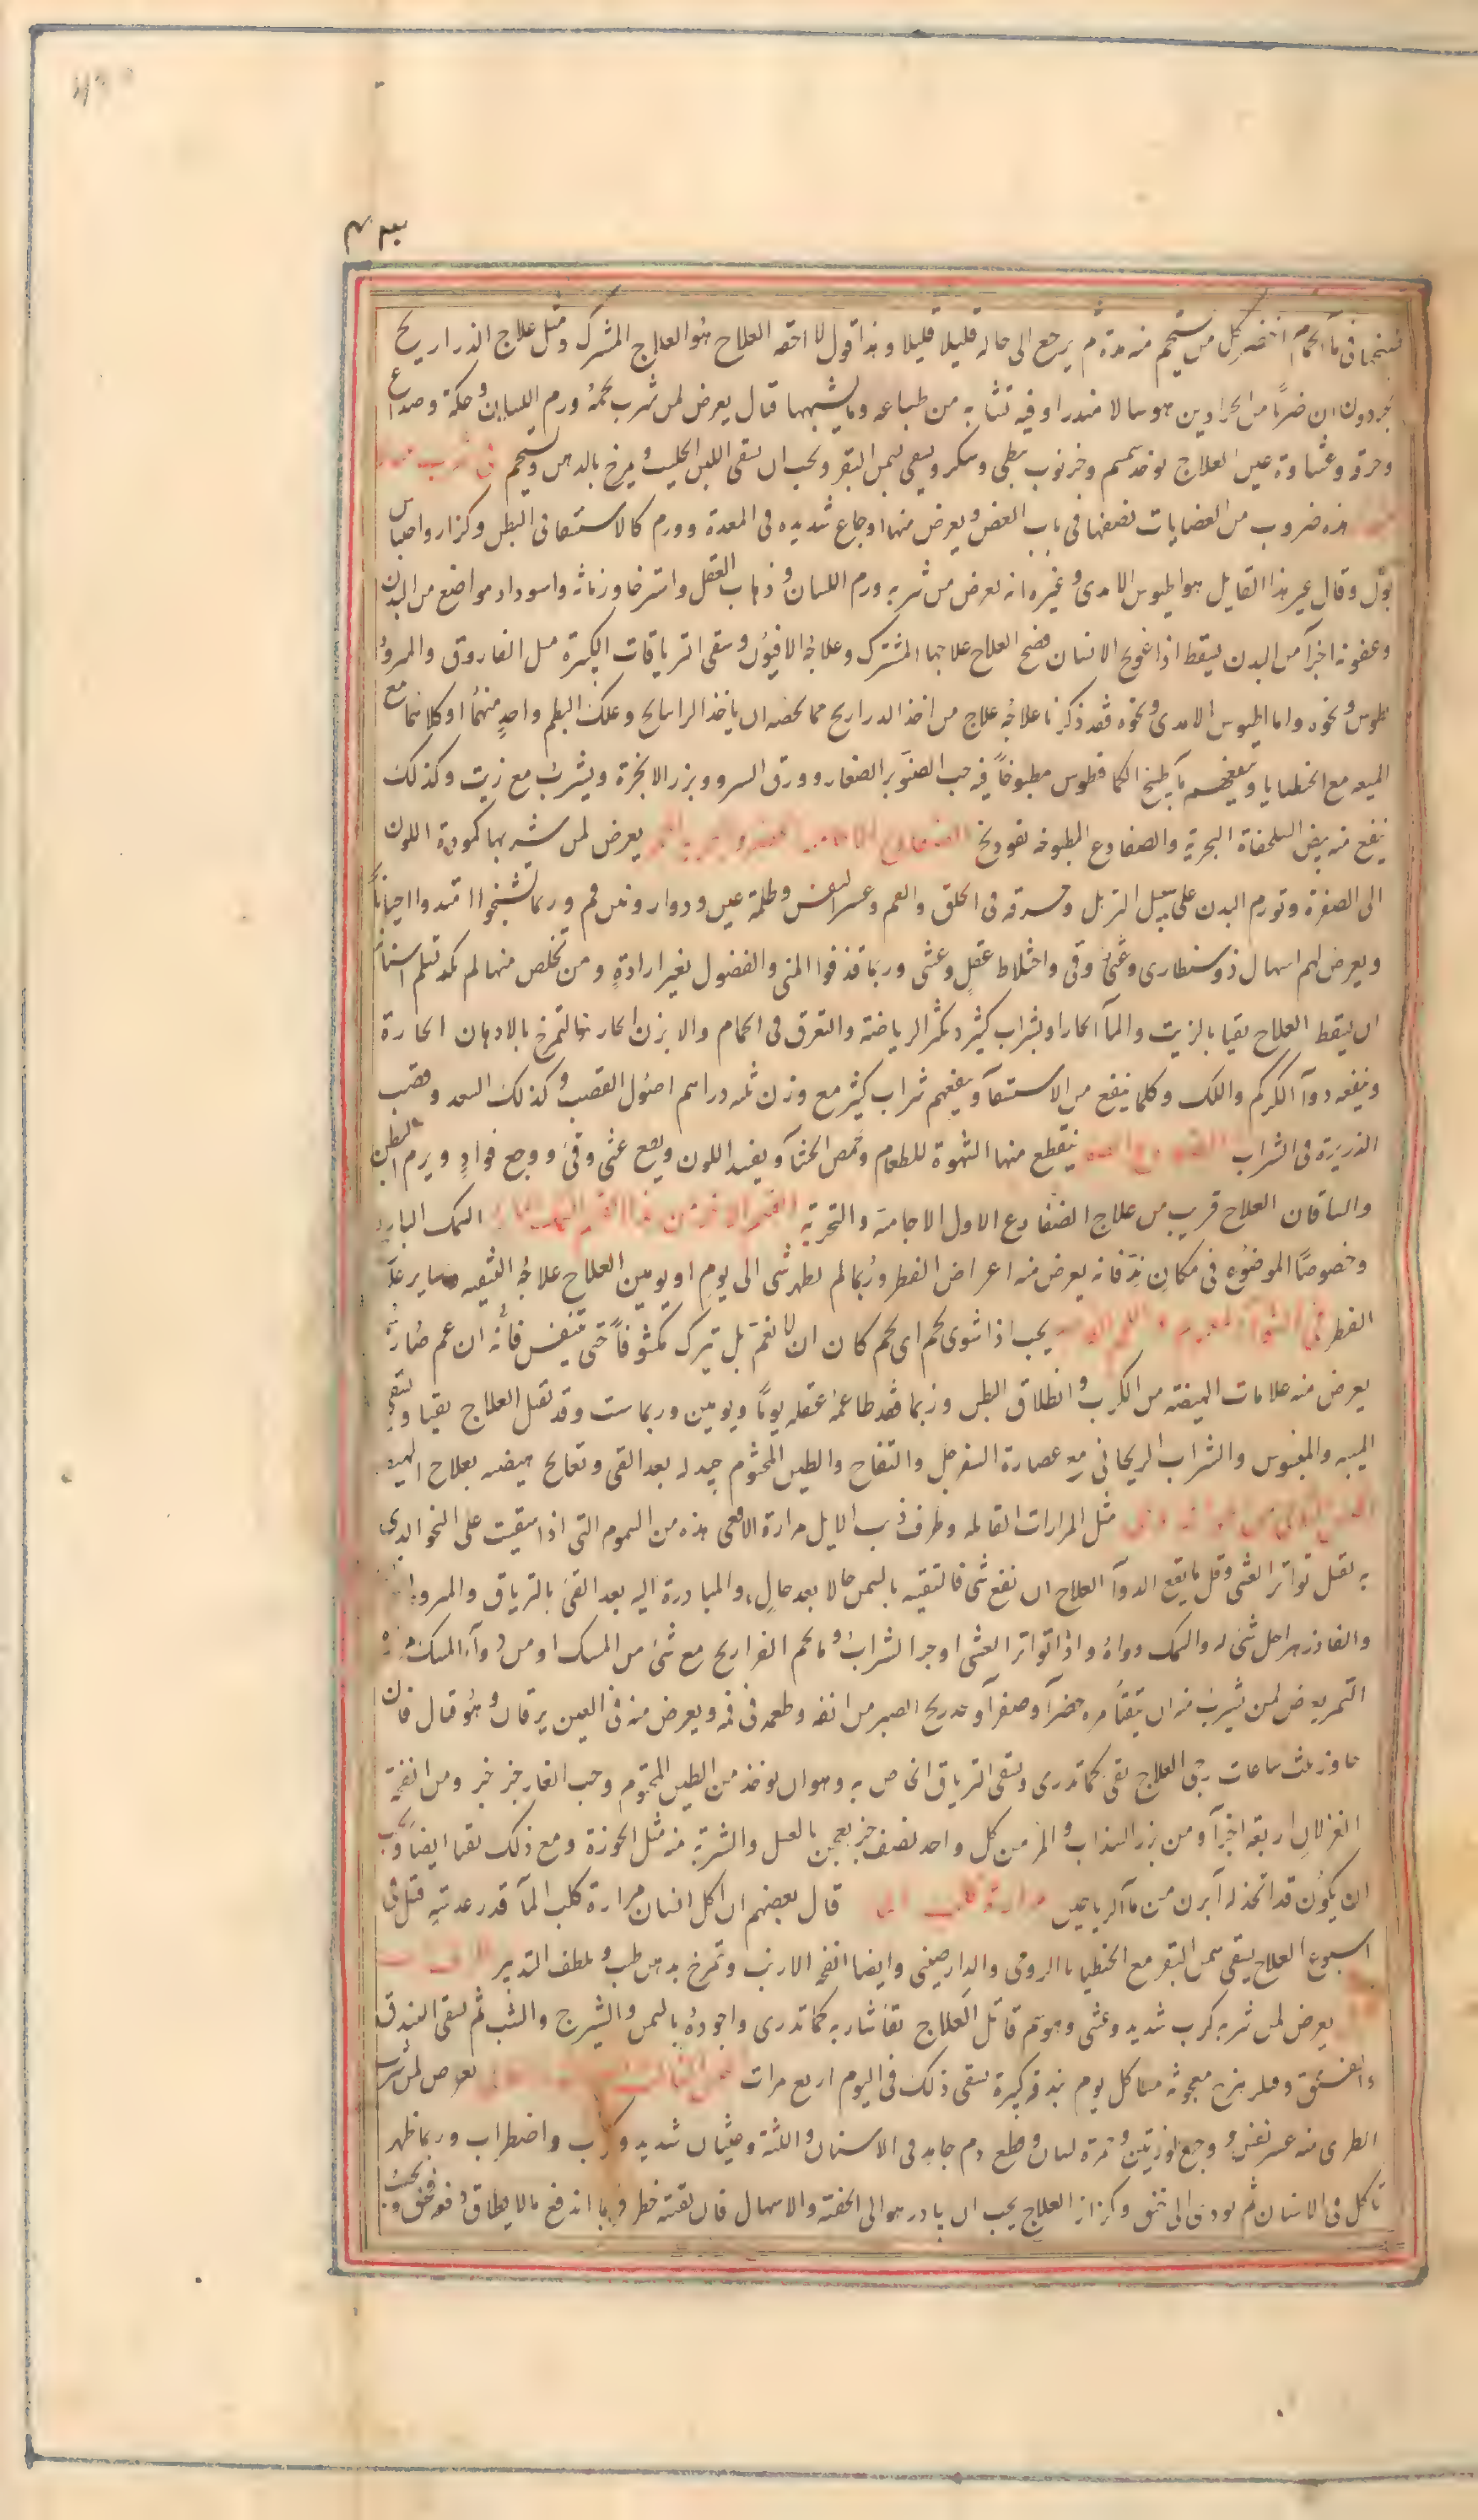 فى مآ الحمام اخضر كل من يستحم منه مدة ثم يرجع الى حاله قليلا قليلا وهذا قول لا احقه العلاج هو العلاج المشترك ومثل علاج الذراريح
ان ضربًا من الحرادين هو سالامندرا وفيه تشابه من طباعه وما يشبهها قال يعرض لمن شرب لحمه ورم اللسان وحكة وصداع
وحرقة وغشاوة عين العلاج يوخذ سمسم وخرنوب نبطى وسكر ويسقى بسمن البقر ويجب ان يسقى اللبن الحليب ويمرخ بالدهن ويستحم فى شرب
هذه ضروب من العضايات نصفها فى باب العض ويعرض منها اوجاع شديده فى المعدة وورم كالاستسقا فى البطن وكزاز واحتباس
بول وقال غير هذا القايل هو اطيوس الامدى وغيره انه يعرض من شربه ورم اللسان وذهاب العقل واسترخا وزمانة واسوداد مواضع من البدن
وعفونه اجزآ من البدن يسقط اذا عولج الانسان فصح العلاج علاجها المشترك وعلاج الافيون وسقى الترياقات الكبيرة مثل الفاروق والمثرودى
طوس ونحوه واما اطيوس الامدى ونحوه فقد ذكرنا علاجه علاج من اخذ الدراريح مما يخصه ان ياخذ الراتيانج وعلك البطم واحدٍ منهما او كلاهما مع
الميعه مع الجنطيايا وينفعهم مآ طبيخ الكمافيطوس مطبوخاً فيه حب الصنوبر الصغار وورق السرو وبزر الانجرة ويشرب مع زيت وكذلك
ينفع منه بيض السلحفاة البحرية والضفادع المطبوخه بفودنج الضفادع يعرض لمن شربها كمودة اللون
الى الصفرة وتورم البدن على سبيل التربل وحرقه فى الحلق والفم وعسر النفس وظلمة عين ودوار ونتن فم وربما تشنجوا امتدوا احيانًا
ويعرض لهم اسهال ذوسنطارى وغثى وقى واختلاط عقلٍ وغشى وربما قذفوا المنى والفضول بغير ارادةٍ ومن تخلص منها لم يكد تسلم اسنانه
ان يسقط العلاج يقيا بالزيت والمآ الحار او بشراب كثير ويكثر الرياضة والتعرق فى الحمام والابزن الحار ثم التمرخ بالادهان الحارة
وينفعه دوآ الكركم واللك وكلما ينفع من الاستسقآ وينفعهم شراب كثير مع وزن ثلثه دراهم اصول القصب وكذلك السعد وقصب
الذريرة فى الشراب ينقطع منها الشهوة للطعام وحمض الجشآ ويفسد اللون ويقع غثى وقئ ووجع فوادٍ ويرم البطن
والساقان العلاج قريب من علاج الضفادع الاول الاجامية والنحرية السمك البارد
وخصوصًا الموضوع فى مكانٍ ندٍ فانه يعرض منه اعراض الفطر وربما لم يظهر شى الى يومٍ او يومين العلاج علاجه التنقيه وساير علاج
الفطر يجب اذا شوى لحم اى لحم كان ان لا يغم بل يترك مكشوفاً حتى يتنفس فانه ان غم صار سما
يعرض منه علامات الهيضة من الكرب وانطلاق البطن وربما فقد طاعمه عقله يومًا ويومين وربما سبت وقد يقتل العلاج يقيا ويسقى
الميبه والميسوس والشراب الريحانى مع عصارة السفرجل والتفاح والطين المختوم جيد له بعد القى وتعالج هيضته بعلاج الهيضه
مثل المرارات القاتله وطرف ذنب الايل مرارة الافعى هذه من السموم التى اذا سقيت على النحو الذى
به يقتل تواتر الغشى وقل ما ينفع الدوآ العلاج ان نفع شى فالتقيه بالسمن حالا بعد حالٍ، والمبادرة اليه بعد القئ بالترياق والمثرود
والفادزهر اجل شئ له والمسك دواه واذا تواتر الغشى اوجر الشراب وما لحم الفراريج مع شئ من المسك او من دوآ المسك
النمر يعرض لمن يشرب منه ان يتقيا مره خضرآ وصفرآ ويجد ريح الصبر من انفه وطعمه فى فمه ويعرض منه فى العين يرقان وهو قتال فان
جاوز ثلث ساعات رجى العلاج يقى كما تدرى ويسقى الترياق الخاص به وهو ان يوخذ من الطين المختوم وحب الغار جز جز ومن انفحة
الغزلان اربعة اجزآ ومن بزر السذاب والمر من كل واحد نصف جز يعجن بالعسل والشربة منه مثل الجوزة ومع ذلك تقيا ايضاً ويجب
ان يكون قد اتخذ له ابزن من مآ الرياحين مرارة كلب المآ قال بعضهم ان اكل انسان مرارة كلب المآ قدر عدسةٍ قتل فى
اسبوع العلاج يسقى سمن البقر مع الجنطيانا الرومى والدارصينى وايضا انفحه الارنب وتمرخ بدهن طيب ويلطف التدبير
يعرض لمن شربه كرب شديد وغشى وهو سم قاتل العلاج يقا شاربه كما تدرى واجوده بالسمن والشيرج والشبت ثم يسقى البندق
والفستق معجونة منها كل يوم بندقه كبيرة يسقى ذلك فى اليوم اربع مرات يعرض لمن شرب
الطرى منه عسر نفس ووجع لوزتين وحمرة لسان وقطع دم جامد فى الاسنان واللثة وغثيان شديد وكرب واضطراب وربما ظهر
تاكل فى الاسنان ثم يودى الى خنق وكزاز العلاج يجب ان يبادر هو الى الحقنه والاسهال فان تقيته خطر فربما اندفع مالا يطاق دفعه فخنق ويجب